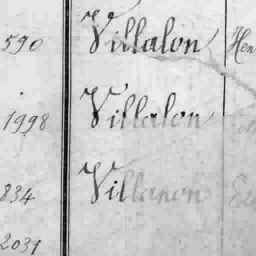 590 Villalon Hen
1998 Villalon
834 Villanon
2031